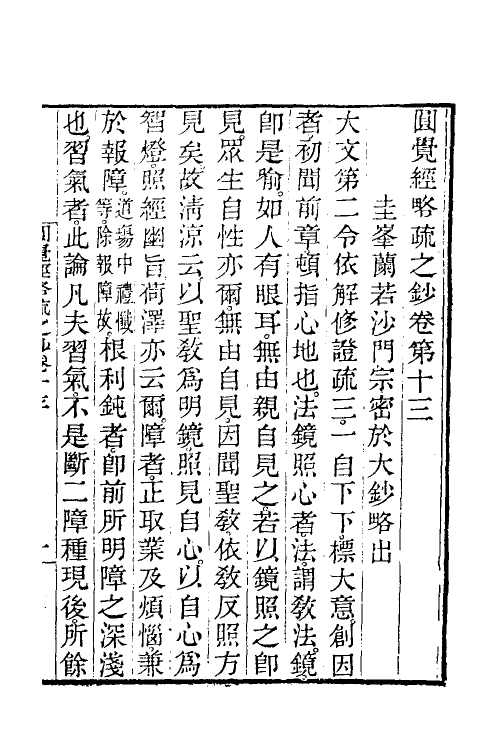 圓覺經略疏之鈔卷第十三
圭峯蘭若沙門宗密於大鈔略出
大文第二令依解修證疏三。一自下下。標大意。創因
者。初聞前章頓指心地也。法鏡照心者。法。謂教法。鏡。
卽是喻。如人有眼耳。無由親自見之。若以鏡照之卽
見。眾生自性亦爾。無由自見。因聞聖教。依教反照方
見矣。故淸涼云。以聖教爲明鏡。照見自心。以自心爲
智燈。照經幽旨。荷澤亦云爾。障者。正取業及煩惱。兼
於報障。道場中禮懺等。除報障故。根利鈍者。卽前所明障之深淺
也。習氣者。此論凡夫習氣。不是斷二障種現後。所餘